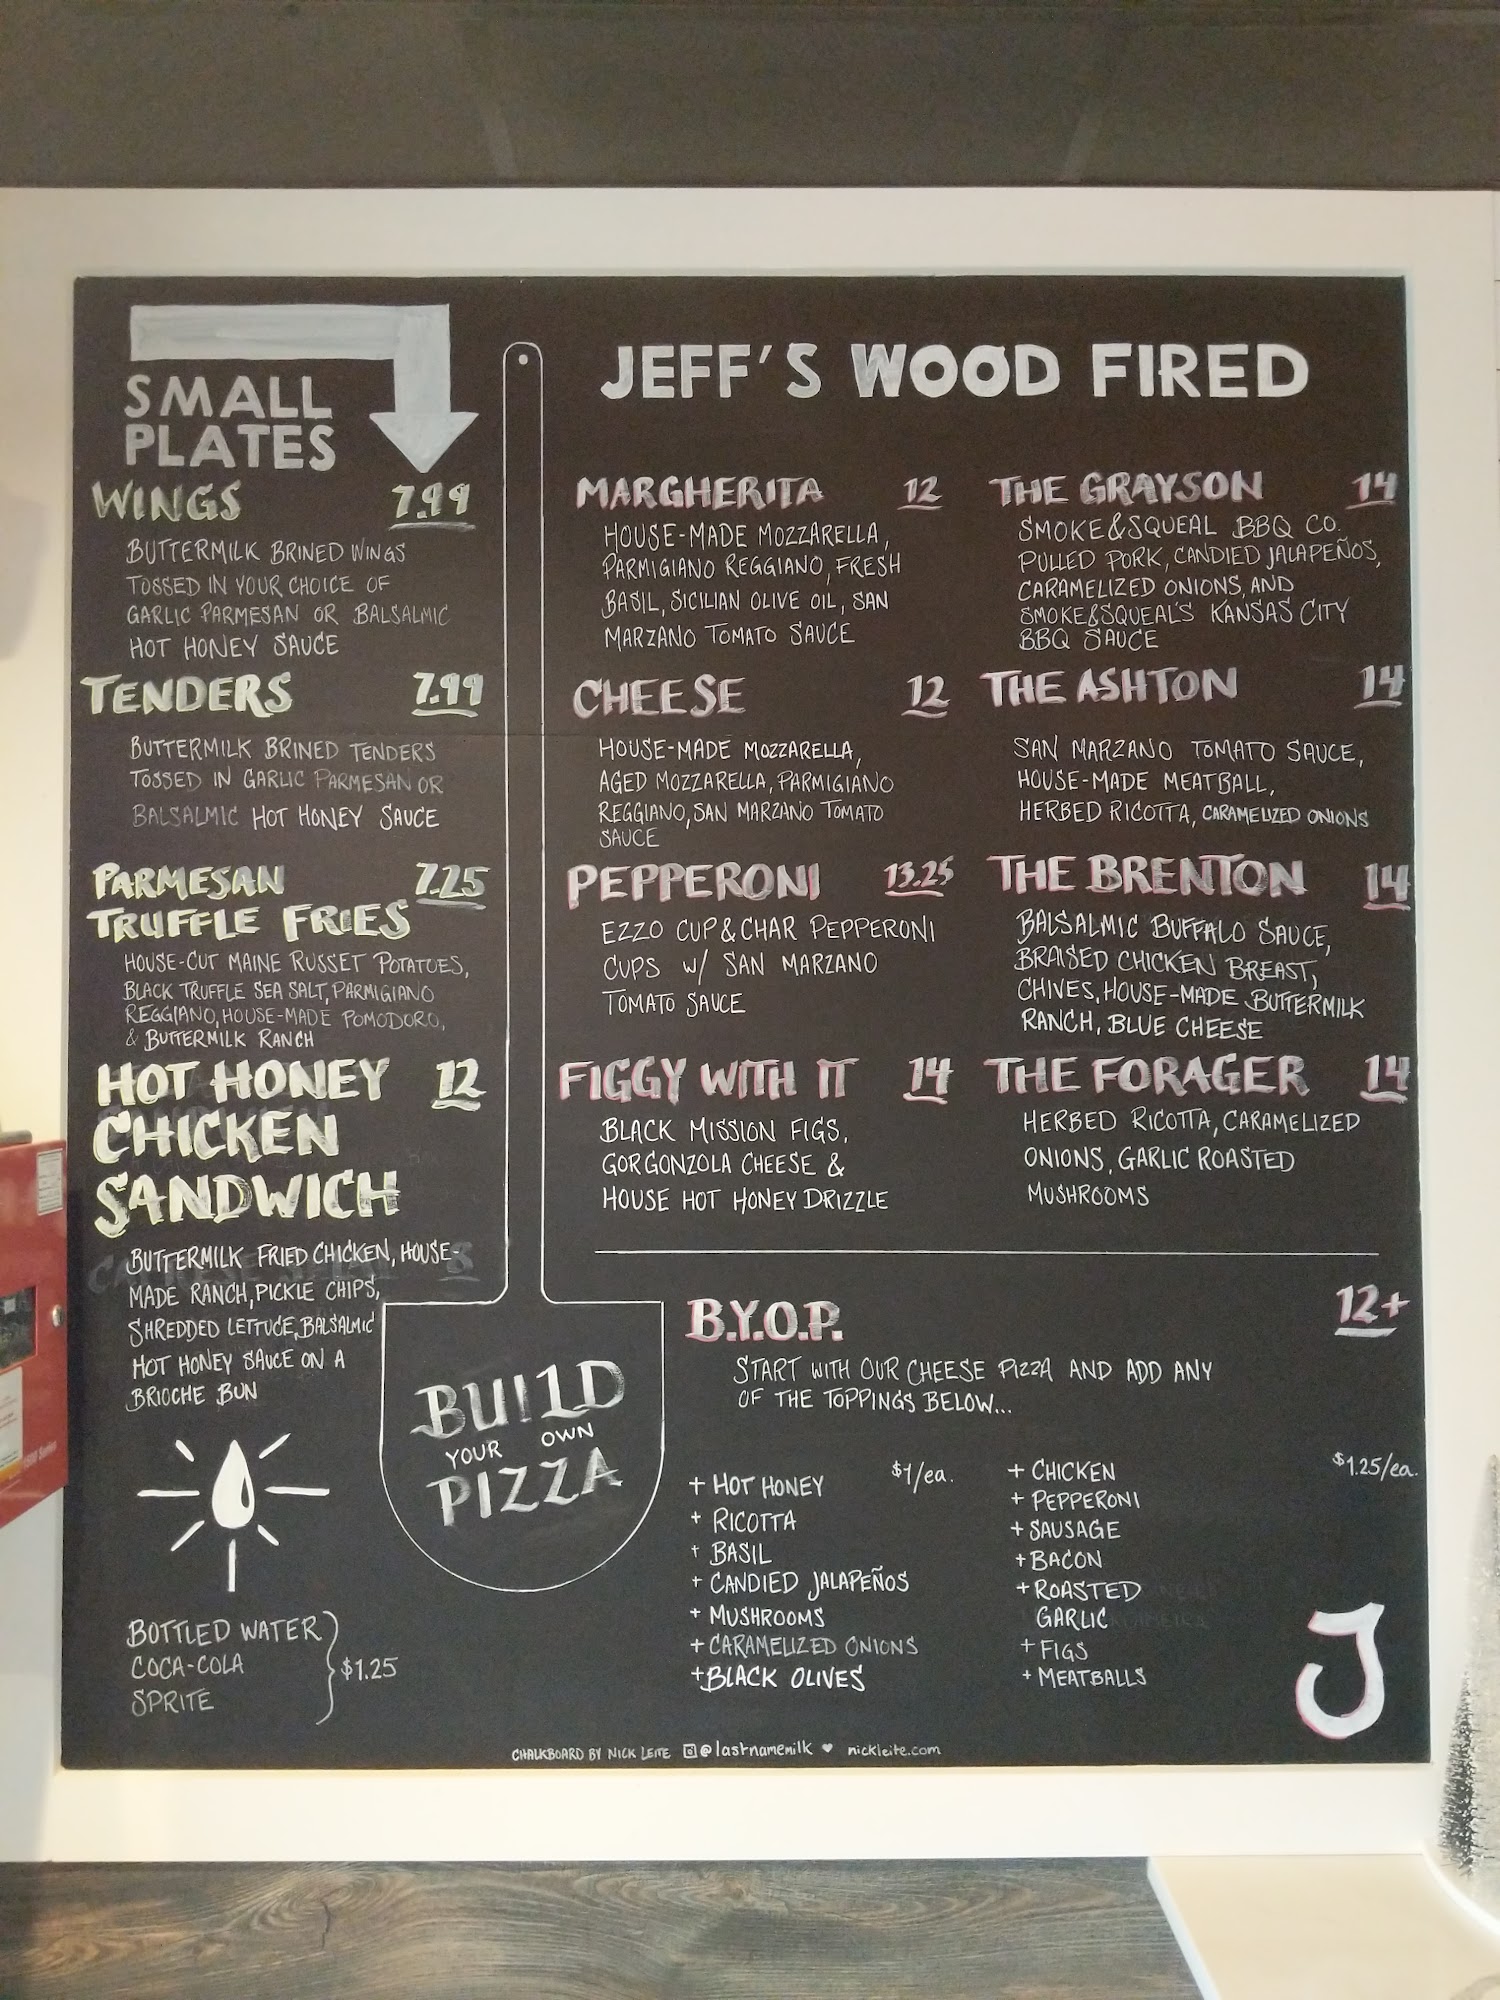 SMALL
PLATES
WINGS 7.99
BUTTERMILK BRINED WINGS
TOSSED IN YOUR CHOICE OF
GARLIC PARMESAN OR BALSALMIC
HOT HONEY SAUCE
TENDERS 7.99
BUTTERMILK BRINED TENDERS
TOSSED IN GARLIC PARMESAN OR
BALSALMIC HOT HONEY SAUCE
PARMESAN 7.25
TRUFFLE FRIES
HOUSE-CUT MAINE RUSSET POTATOES,
BLACK TRUFFLE SEA SALT, PARMIGIANO
REGGIANO, HOUSE-MADE POMODORO,
& BUTTERMILK RANCH
HOT HONEY 12
CHICKEN
SANDWICH
BUTTERMILK FRIED CHICKEN, HOUSE-
MADE RANCH, PICKLE CHIPS,
SHREDDED LETTUCE, BALSALMIC
HOT HONEY SAUCE ON A
BRIOCHE BUN
BOTTLED WATER
COCA-COLA
SPRITE
$1.25
JEFF'S WOOD FIRED
MARGHERITA 12
HOUSE-MADE MOZZARELLA,
PARMIGIANO REGGIANO, FRESH
BASIL, SICILIAN OLIVE OIL, SAN
MARZANO TOMATO SAUCE
CHEESE 12
HOUSE-MADE MOZZARELLA,
AGED MOZZARELLA, PARMIGIANO
REGGIANO, SAN MARZANO TOMATO
SAUCE
PEPPERONI 13.25
EZZO CUP & CHAR PEPPERONI
CUPS W/ SAN MARZANO
TOMATO SAUCE
FIGGY WITH IT 14
BLACK MISSION FIGS,
GORGONZOLA CHEESE &
HOUSE HOT HONEY DRIZZLE
THE GRAYSON 14
SMOKE&SQUEAL BBQ CO.
PULLED PORK, CANDIED JALAPEÑOS,
CARAMELIZED ONIONS, AND
SMOKE&SQUEAL'S KANSAS CITY
BBQ SAUCE
THE ASHTON 14
SAN MARZANO TOMATO SAUCE,
HOUSE-MADE MEATBALL,
HERBED RICOTTA, CARAMELIZED ONIONS
THE BRENTON 14
BALSALMIC BUFFALO SAUCE,
BRAISED CHICKEN BREAST,
CHIVES, HOUSE-MADE BUTTERMILK
RANCH, BLUE CHEESE
THE FORAGER 14
HERBED RICOTTA, CARAMELIZED
ONIONS, GARLIC ROASTED
MUSHROOMS
BUILD
YOUR OWN
PIZZA
B.Y.O.P. 12+
START WITH OUR CHEESE PIZZA AND ADD ANY
OF THE TOPPINGS BELOW...
+ HOT HONEY $1/ea.
+ RICOTTA
+ BASIL
+ CANDIED JALAPEÑOS
+ MUSHROOMS
+ CARAMELIZED ONIONS
+ BLACK OLIVES
+ CHICKEN $1.25/ea.
+ PEPPERONI
+ SAUSAGE
+ BACON
+ ROASTED
GARLIC
+ FIGS
+ MEATBALLS
J
CHALKBOARD BY NICK LEITE @lastnamemilk ♥ nickleite.com